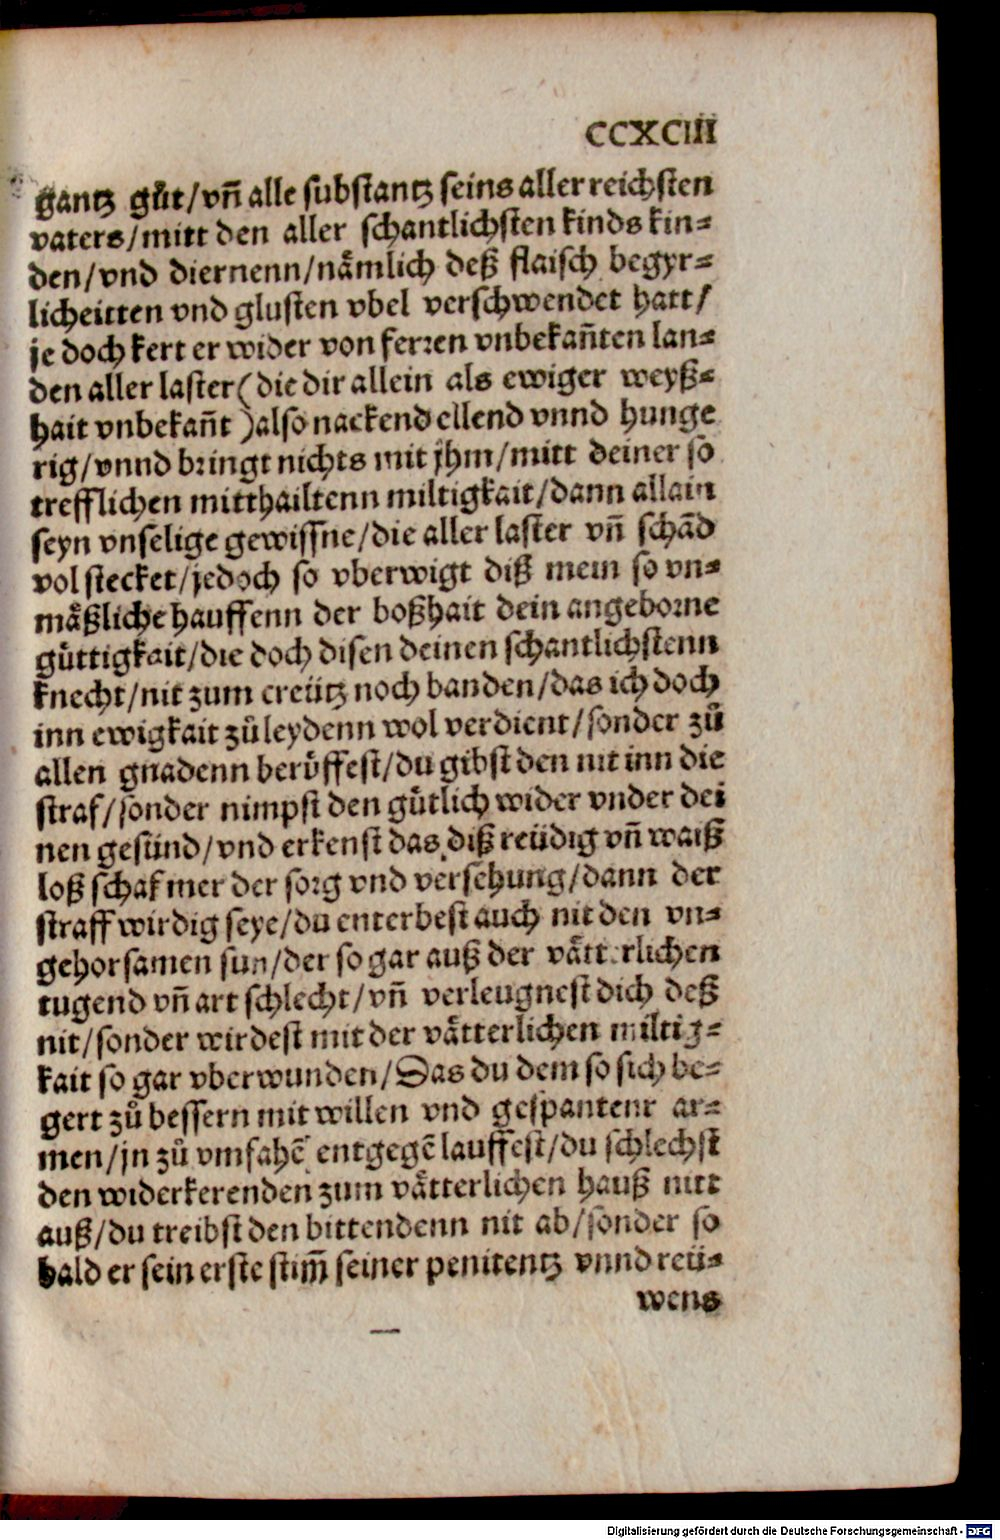 CCXCIII
gantz gůt/vn̄ alle substantz seins aller reichsten
vaters/mitt den aller schantlichsten kinds kin⸗
den/vnd diernenn/nämlich deß flaisch begyr⸗
licheitten vnd glusten vbel verschwendet hatt/
je doch kert er wider von ferren vnbekan̄ten lan⸗
den aller laster(die dir allein als ewiger weyß⸗
hait vnbekan̄t)also nackend ellend vnnd hunge
rig/vnnd bringt nichts mit jhm/mitt deiner so
trefflichen mitthailtenn miltigkait/dann allain
seyn vnselige gewissne/die aller laster vn̄ schād
vol stecket/jedoch so vberwigt diß mein so vn⸗
mäßliche hauffenn der boßhait dein angeborne
güttigkait/die doch disen deinen schantlichstenn
knecht/nit zum creütz noch banden/das ich doch
inn ewigkait zůleydenn wol verdient/sonder zů
allen gnadenn berůffest/du gibst den nit inn die
straf/sonder nimpst den gütlich wider vnder dei
nen gesünd/vnd erkenst das diß reüdig vn̄ waiß
loß schaf mer der sorg vnd versehung/dann der
straff wirdig seye/du enterbest auch nit den vn⸗
gehorsamen sun/der so gar auß der vätterlichen
tugend vn̄ art schlecht/vn̄ verleugnest dich deß
nit/sonder wirdest mit der vätterlichen miltig⸗
kait so gar vberwunden/Das du dem so sich be⸗
gert zů bessern mit willen vnd gespantenr ar⸗
men/jn zů vmfahē entgegē lauffest/du schlechst
den widerkerenden zum vätterlichen hauß nitt
auß/du treibst den bittendenn nit ab/sonder so
bald er sein erste stim̄ seiner penitentz vnnd reü⸗
wens
Digitalisierung gefördert durch die Deutsche Forschungsgemeinschaft - DFG